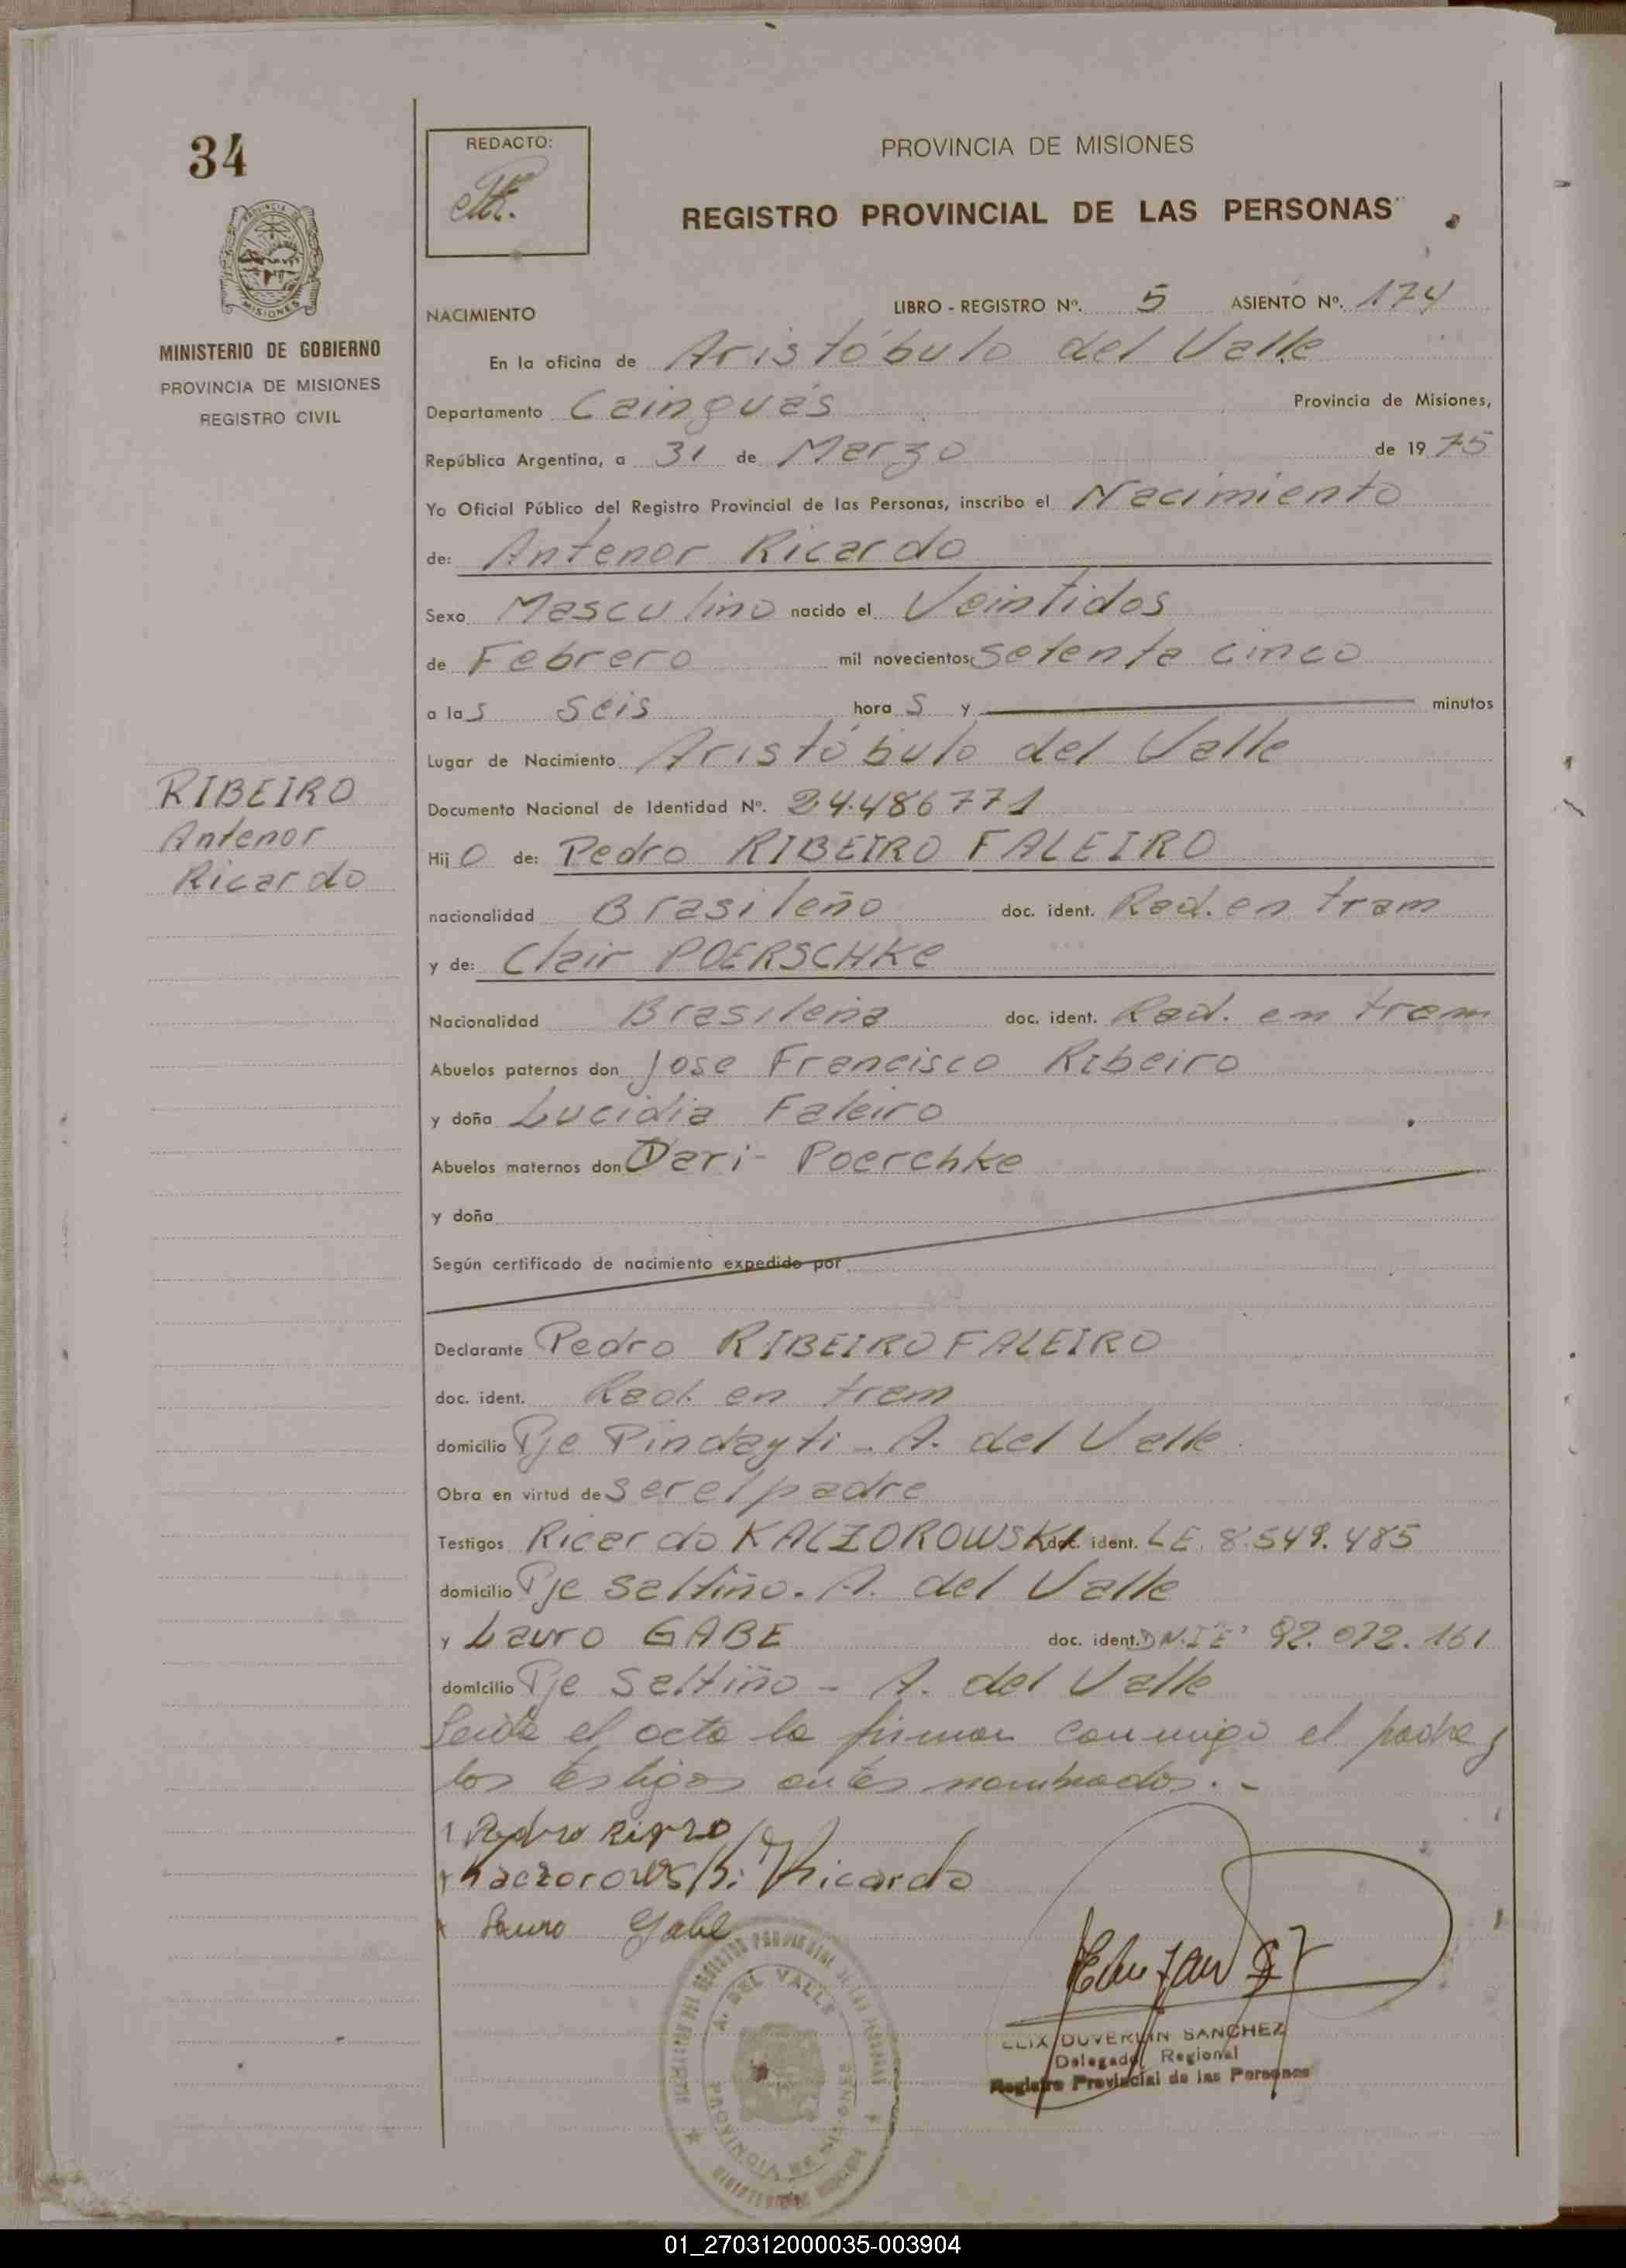 34
REDACTO:
PROVINCIA DE MISIONES
REGISTRO PROVINCIAL DE LAS PERSONAS
MINISTERIO DE GOBIERNO
PROVINCIA DE MISIONES
REGISTRO CIVIL
NACIMIENTO
LIBRO - REGISTRO Nº. 5 ASIENTO Nº. 174
En la oficina de Aristóbulo del Valle
Departamento Cainguás Provincia de Misiones,
República Argentina, a 31 de Marzo de 1975
Yo Oficial Público del Registro Provincial de las Personas, inscribo el Nacimiento
de: Antenor Ricardo
Sexo Masculino nacido el Veintidos
de Febrero mil novecientos setenta cinco
a las seis horas y minutos
Lugar de Nacimiento Aristóbulo del Valle
RIBEIRO
Antenor
Ricardo
Documento Nacional de Identidad Nº. 24.486771
Hijo de: Pedro RIBEIRO FALEIRO
nacionalidad Brasileño doc. ident. Rad. en tram
y de: Clair POERSCHKe
Nacionalidad Brasileña doc. ident. Rad. en tram
Abuelos paternos don Jose Francisco Ribeiro
y doña Lucidia Faleiro
Abuelos maternos don Dari - Poerchke
y doña
Según certificado de nacimiento expedido por
Declarante Pedro RIBEIRO FALEIRO
doc. ident. Rad. en tram
domicilio Pje Pindayti - A. del Valle
Obra en virtud de ser el padre
Testigos Ricardo KACZOROWSKI doc. ident. LE. 8.549.485
domicilio Pje Saltiño. A. del Valle
y Lauro GABE doc. ident. DN.I"E" 92.072.161
domicilio Pje Saltiño - A. del Valle
Leida el acta la firman conmigo el padre y
los testigos antes nombrados. -
Kaczorowski Ricardo
Lauro Gabe
A. DEL VALLE
PROVINCIA DE MISIONES
DUVERLIN SANCHEZ
Delegado Regional
Registro Provincial de las Personas
01_270312000035-003904